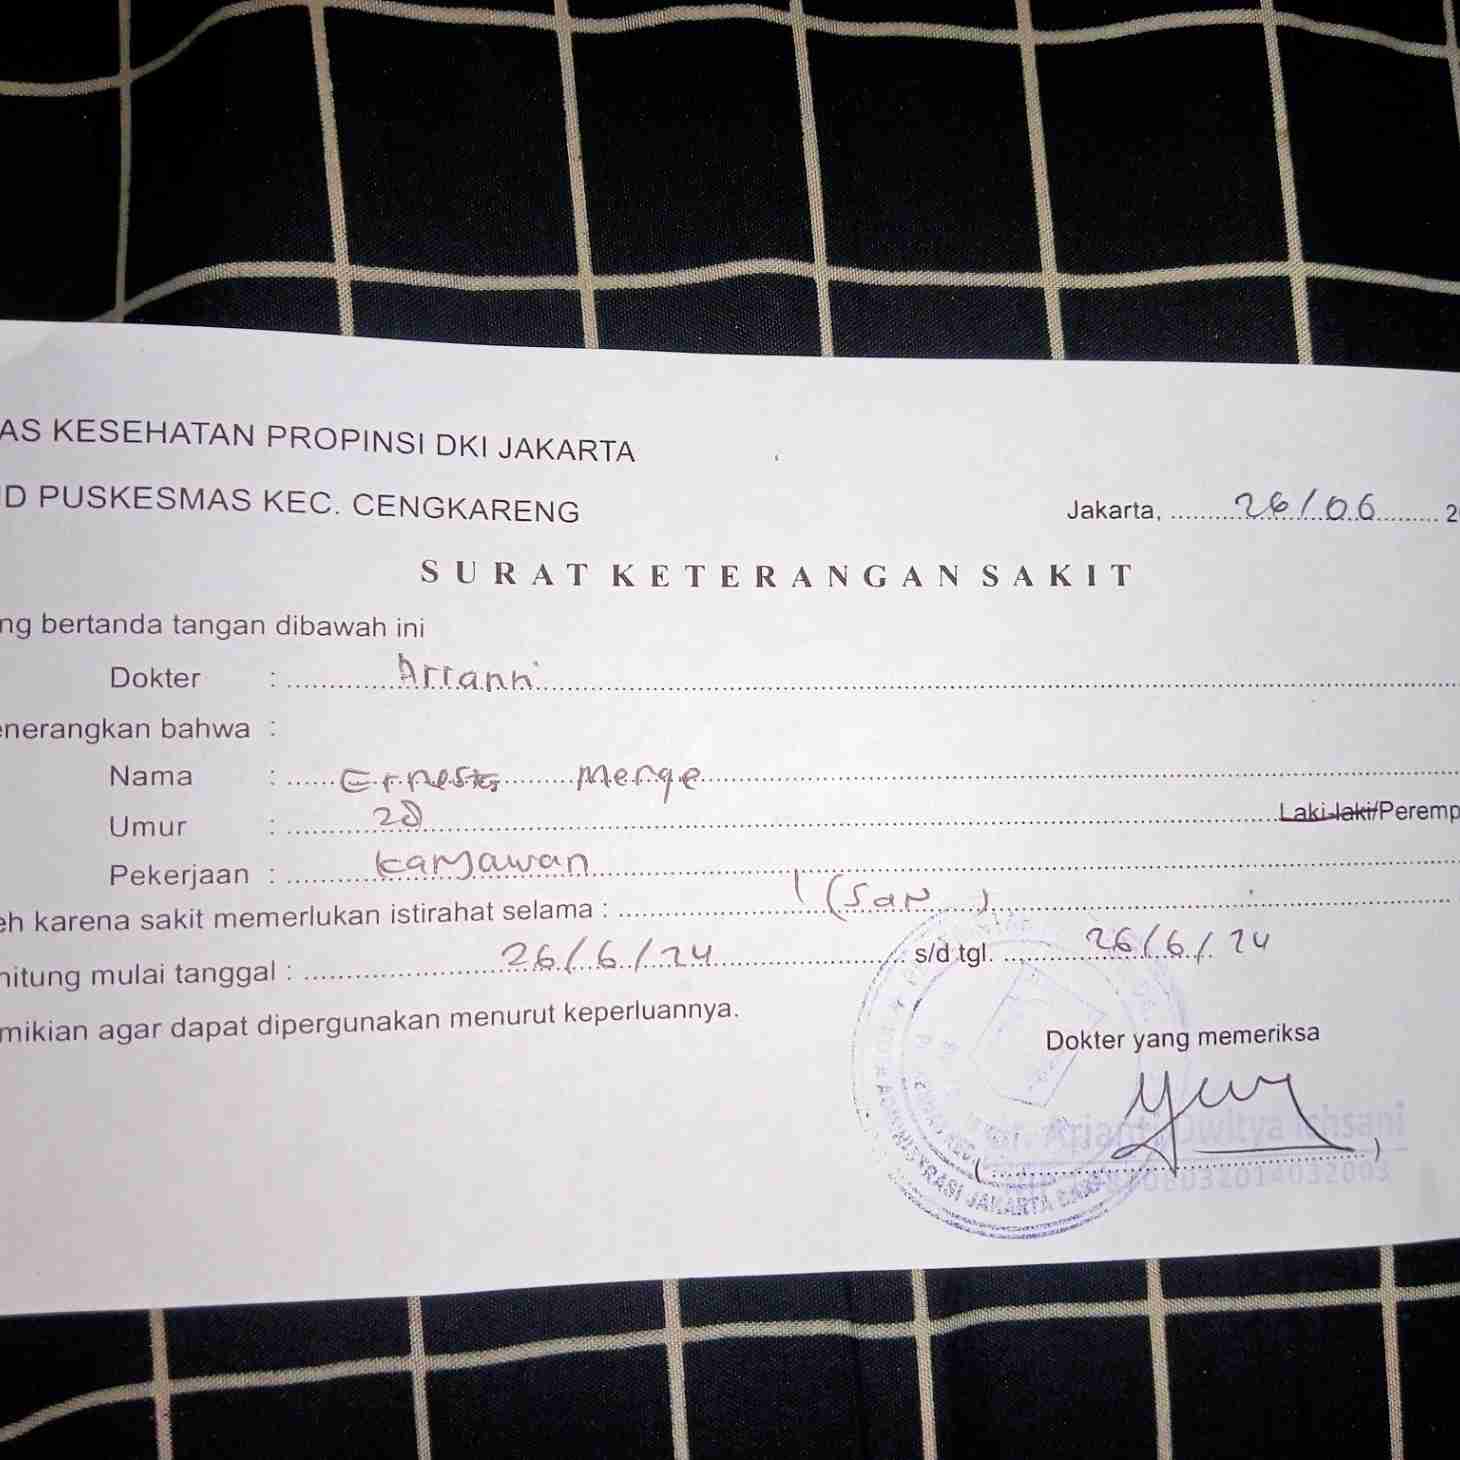 AS KESEHATAN PROPINSI DKI JAKARTA
D PUSKESMAS KEC. CENGKARENG
Jakarta, 26/06 2
SURAT KETERANGAN SAKIT
ng bertanda tangan dibawah ini
Dokter :
enerangkan bahwa :
Nama : Merge
Umur : 28 Laki-laki/Peremp
Pekerjaan : karyawan
eh karena sakit memerlukan istirahat selama : 1 (
hitung mulai tanggal : 26/6/24 s/d tgl. 26/6/24
mikian agar dapat dipergunakan menurut keperluannya.
Dokter yang memeriksa
Dwitya Ichsani
ADMINISTRASI JAKARTA